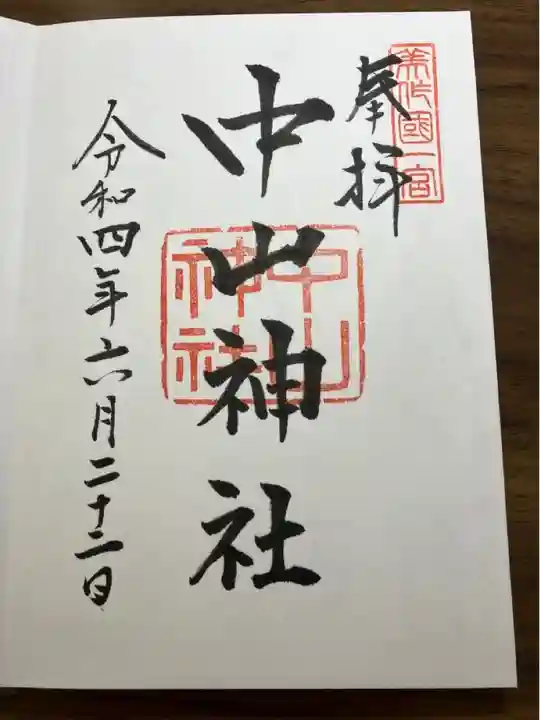 奉拝
美作國一宮
中山神社
中山神社
令和四年六月二十二日